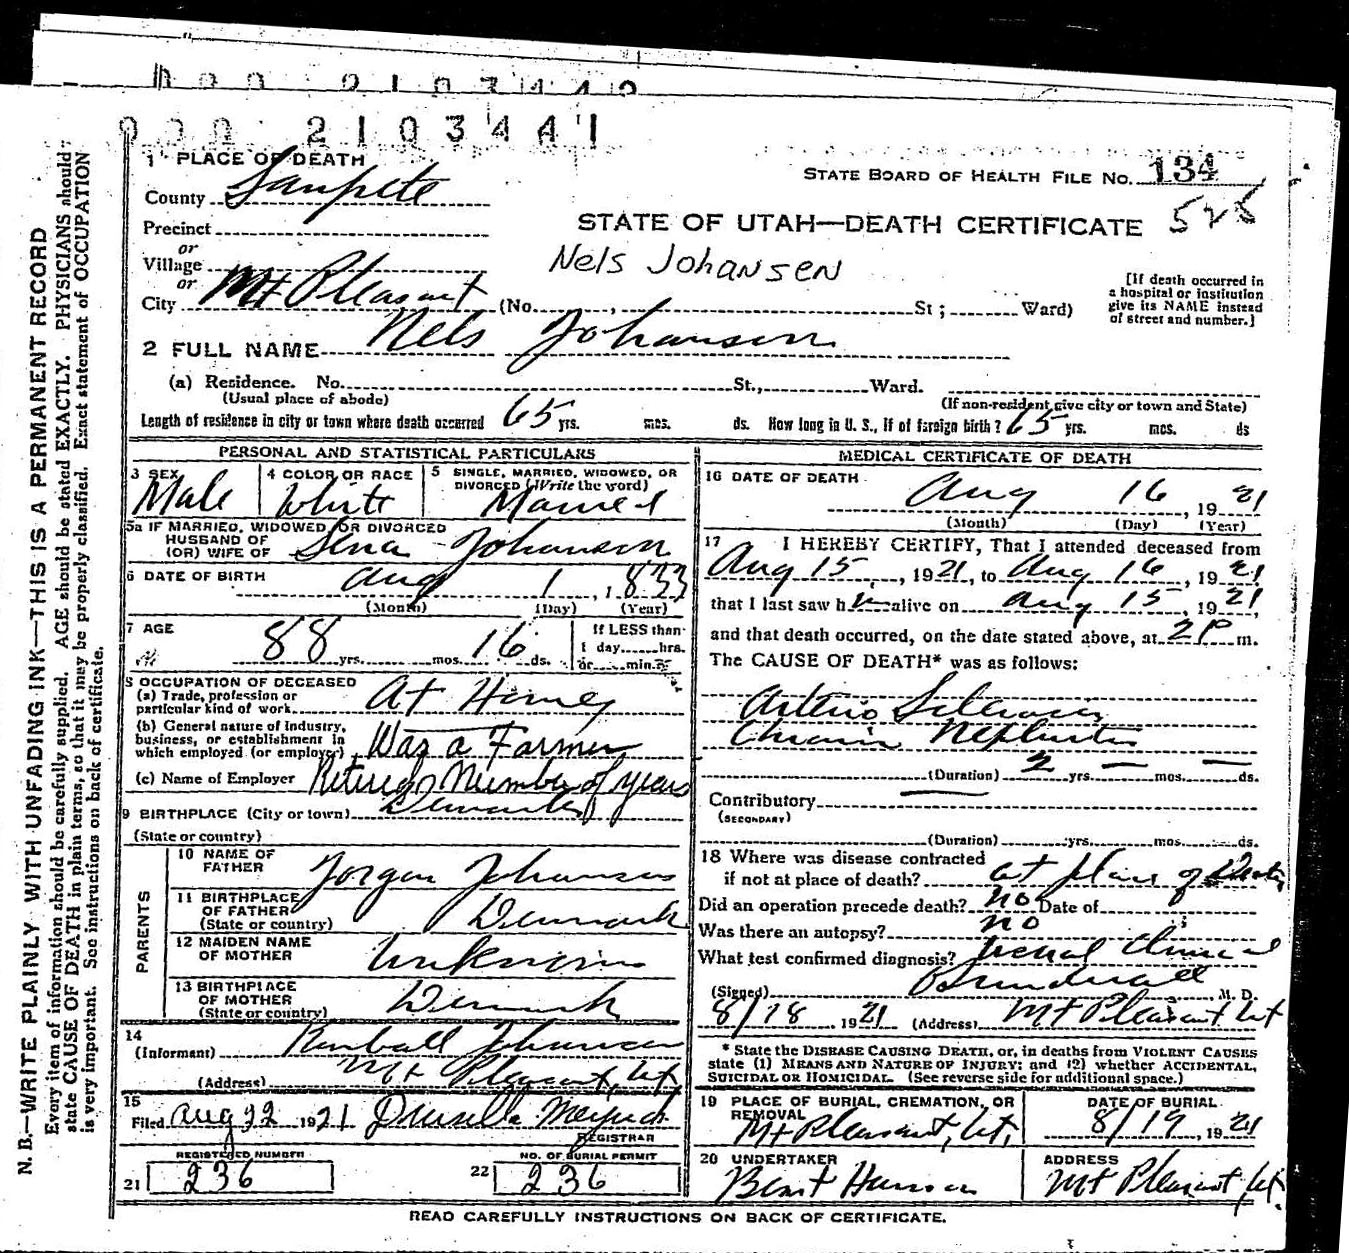 000 2103442
000 2103441
1 PLACE OF DEATH
STATE BOARD OF HEALTH FILE No. 134
County Sanpete
STATE OF UTAH—DEATH CERTIFICATE 525
Precinct
or
Village
Nels Johansen
or
City Mt Pleasant (No. , St ; Ward)
[If death occurred in
a hospital or institution
give its NAME instead
of street and number.]
2 FULL NAME Nels Johansen
(a) Residence. No. St., Ward.
(Usual place of abode)
(If non-resident give city or town and State)
Length of residence in city or town where death occurred 65 yrs. mos. ds. How long in U. S., if of foreign birth? 65 yrs. mos. ds
PERSONAL AND STATISTICAL PARTICULARS
3 SEX
Male
4 COLOR OR RACE
White
5 SINGLE, MARRIED, WIDOWED, OR
DIVORCED (Write the word)
Married
5a IF MARRIED, WIDOWED, OR DIVORCED
HUSBAND OF
(OR) WIFE OF Sena Johansen
6 DATE OF BIRTH Aug 1, 1833
(Month) (Day) (Year)
7 AGE
88 yrs. mos. 16 ds.
If LESS than
1 day hrs.
or min.
8 OCCUPATION OF DECEASED
(a) Trade, profession or
particular kind of work At Home
(b) General nature of industry,
business, or establishment in
which employed (or employer) Was a Farmer
(c) Name of Employer Retired Number of years
9 BIRTHPLACE (City or town) Denmark
(State or country)
PARENTS
10 NAME OF
FATHER Jorgan Johansen
11 BIRTHPLACE
OF FATHER
(State or country) Denmark
12 MAIDEN NAME
OF MOTHER Unknown
13 BIRTHPLACE
OF MOTHER
(State or country) Denmark
14
(Informant) Johansen
(Address) Mt Pleasant, Ut
15
Filed Aug 22 1921 Drusilla
REGISTRAR
REGISTERED NUMBER
21 236
NO. OF BURIAL PERMIT
22 236
MEDICAL CERTIFICATE OF DEATH
16 DATE OF DEATH
Aug 16, 1921
(Month) (Day) (Year)
17 I HEREBY CERTIFY, That I attended deceased from
Aug 15, 1921, to Aug 16, 1921
that I last saw h alive on Aug 15, 1921,
and that death occurred, on the date stated above, at 2P m.
The CAUSE OF DEATH* was as follows:
Arterio Sclerosis
Chronic Nephritis
(Duration) 2 yrs. — mos. — ds.
Contributory
(SECONDARY)
(Duration) yrs. mos. ds.
18 Where was disease contracted
if not at place of death? at place of Death
Did an operation precede death? No Date of
Was there an autopsy? no
What test confirmed diagnosis? Clinical
(Signed) M. D.
8/18 1921 (Address) Mt Pleasant Ut
* State the DISEASE CAUSING DEATH, or, in deaths from VIOLENT CAUSES
state (1) MEANS AND NATURE OF INJURY; and (2) whether ACCIDENTAL,
SUICIDAL OR HOMICIDAL. (See reverse side for additional space.)
19 PLACE OF BURIAL, CREMATION, OR
REMOVAL
Mt Pleasant, Ut,
DATE OF BURIAL
8/19, 1921
20 UNDERTAKER
Hansen
ADDRESS
Mt Pleasant, Ut.
READ CAREFULLY INSTRUCTIONS ON BACK OF CERTIFICATE.
N. B.—WRITE PLAINLY, WITH UNFADING INK—THIS IS A PERMANENT RECORD
Every item of information should be carefully supplied. AGE should be stated EXACTLY. PHYSICIANS should
state CAUSE OF DEATH in plain terms, so that it may be properly classified. Exact statement of OCCUPATION
is very important. See instructions on back of certificate.